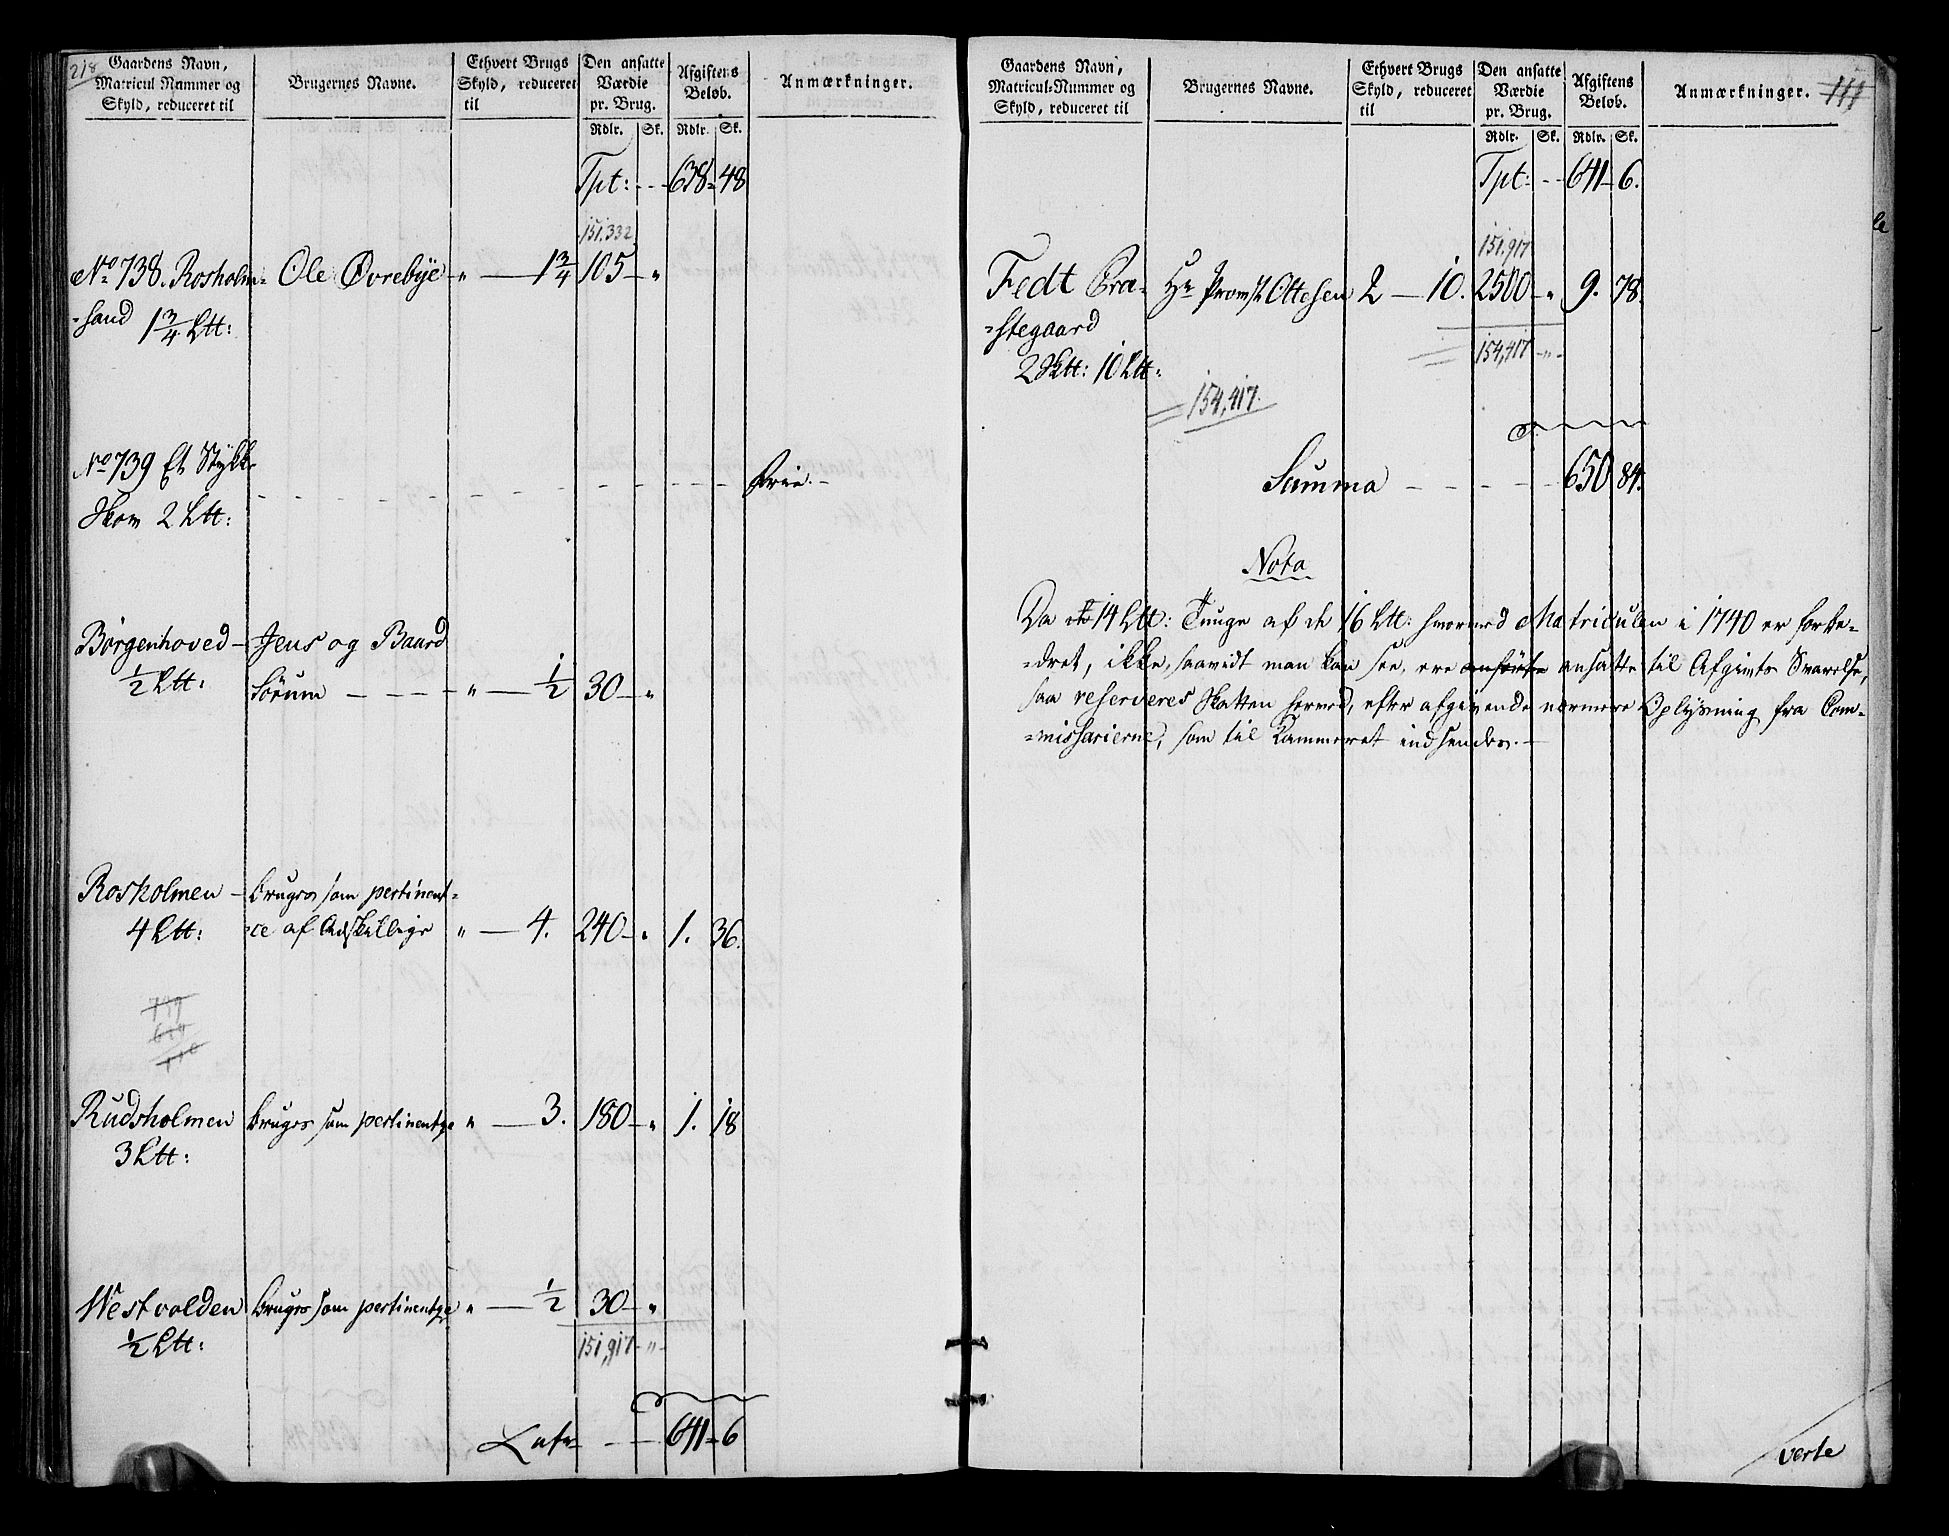 218
Gaardens Navn,
Matricul Nummer og
Skyld, reduceret til
Brugernes Navne.
Ethvert Brugs
Skyld, reduceret
til
Den ansatte
Værdie
pr. Brug.
Rdlr. Sk.
Afgiftens
Beløb.
Rdlr. Sk.
Anmærkninger.
Tpt: - - 638 = 48
151,332
No 738. Rosholm= Ole Øvrebye - " — 1 3/4 105 — "
=sand 1 3/4 Ltt:
No 739 Et Stykke
Skov 2 Ltt: - - - - - - - - - - Frie. -
Börgenhoved - Jens og Baard
1/2 Ltt: Sörum - - - - " — 1/2 30 — "
Rosholmen - bruges som pertinent=
4 Ltt: =ce af Adskillige " — 4. 240 — " 1. 36.
Rudsholmen bruges som pertinentze " — 3. 180 — " 1. 18
3 Ltt:
Westvolden bruges som pertinentze " — 1/2 30 — "
1/2 Ltt: 151,917 - " -
Latr - - - 641 = 6
Gaardens Navn,
Matricul-Nummer og
Skyld, reduceret til
Brugernes Navne.
Ethvert Brugs
Skyld, reduceret
til
Den ansatte
Værdie
pr. Brug.
Rdlr. Sk.
Afgiftens
Beløb.
Rdlr. Sk.
Anmærkninger.
111
Tpt: - - 641 - 6.
151,917
Fedt Præ= Hr Provst Ottesen 2 — 10. 2500 — " 9. 78.
=stegaard
2 Sktt: 10 Ltt: 154,417 - " -
154,417.
Summa - - - - 650 84.
Nota
Da de 14 Ltt: Tunge af de 16 Ltt: hvormed Matriculen i 1740 er forbe=
=dret, ikke, saavidt man kan see, ere anförte ansatte til Afgivts Svarelse,
saa reserveres Skatten herved, efter afgivende nærmere Oplysning fra Com=
=missarierne, som til Kammeret indsendes. —
verte